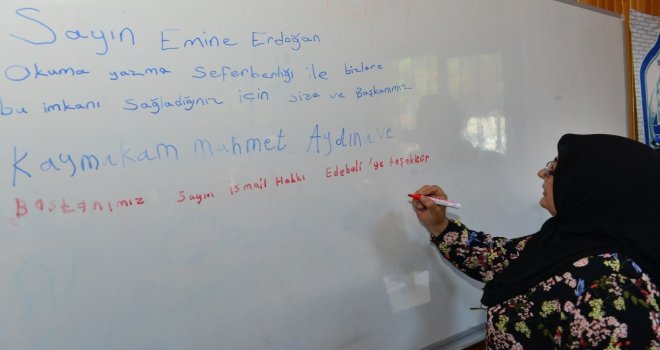 Sayın Emine Erdoğan
Okuma yazma Seferberliği ile bizlere
bu imkanı Sağladığınız için size ve Başkanımız
Kaymakam mahmet Aydına ve
Başkanımız Sayın ismail Hakkı Edebali'ye teşekkür